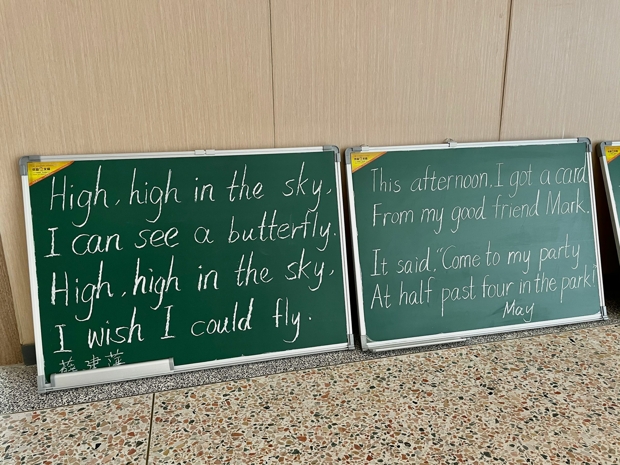 High, high in the sky,
I can see a butterfly.
High, high in the sky,
I wish I could fly.
This afternoon, I got a card
From my good friend Mark.
It said, "Come to my party
At half past four in the park!"
May